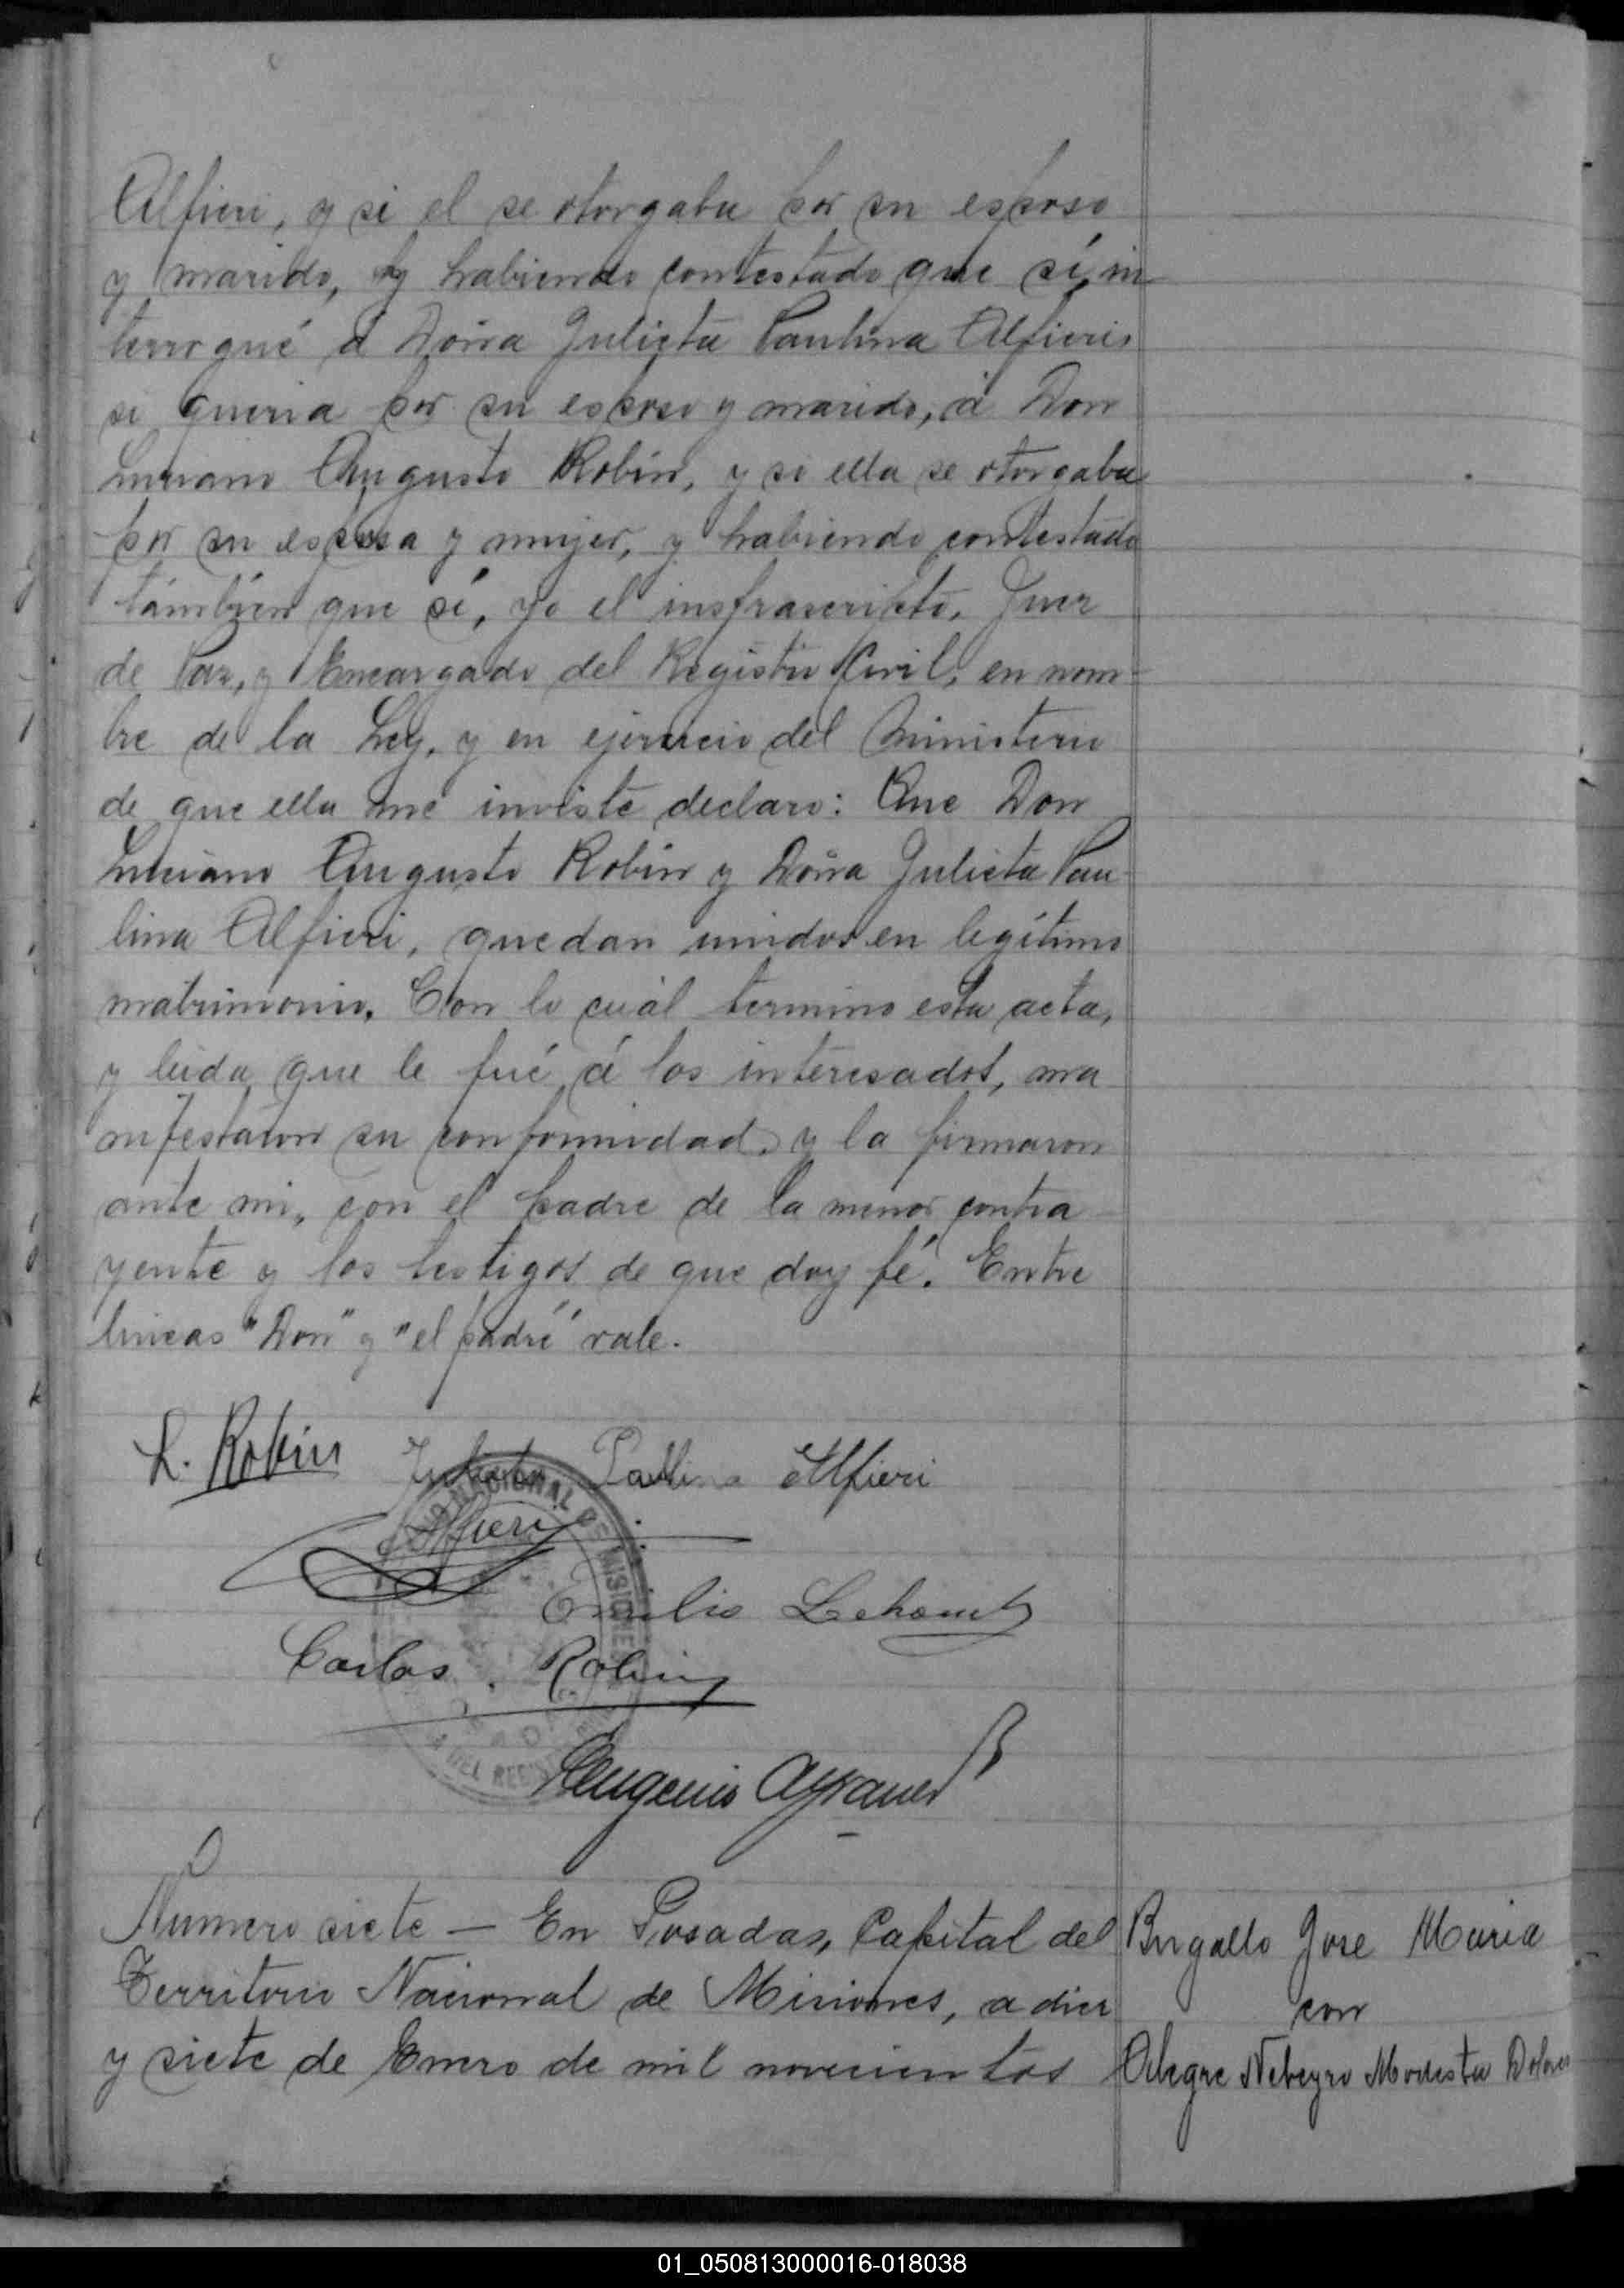 Alfieri, y si el se otorgaba por su esposo
y marido, y habiendo contestado que sí, in
terrogué á Doña Julieta Paulina Alfieri,
si queria por su esposo y marido, á Don
Luciano Augusto Robin, y si ella se otorgaba
por su esposa y mujer, y habiendo contestado
también que sí, yo el insfrascripto, Juez
de Paz, y Encargado del Registro Civil, en nom-
bre de la Ley, y en ejercicio del Ministerio
de que ella me inviste declaro: Que Don
Luciano Augusto Robin y Doña Julieta Pau
lina Alfieri, quedan unidos en legítimo
matrimonio. Con lo cuál termino esta acta,
y leida que le fué á los interesados, ma
nifestaron su conformidad y la firmaron
ante mi, con el padre de la menor contra
yente y los testigos de que doy fé. Entre
lineas "Don" y "el padre" vale.
L. Robin Julieta Paulina Alfieri
Alfieri
NACIONAL DE MISIONES
Emilio
Carlos Robin
DEL REGIS
Eugenio
Numero siete — En Posadas, Capital del
Territorio Nacional de Misiones, a diez
y siete de Enero de mil novecientos
Bugallo Jose Maria
con
Alegre Nebeyro Modesta Dolores
01_050813000016-018038